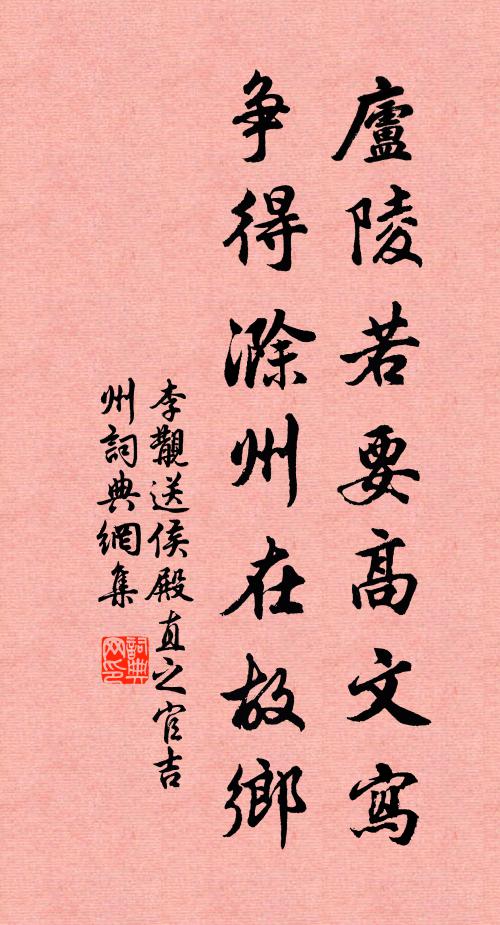 廬陵若要高文寫
争得滁州在故鄉
李覯送侯殿直之官吉
州詞典網集
詞典网印